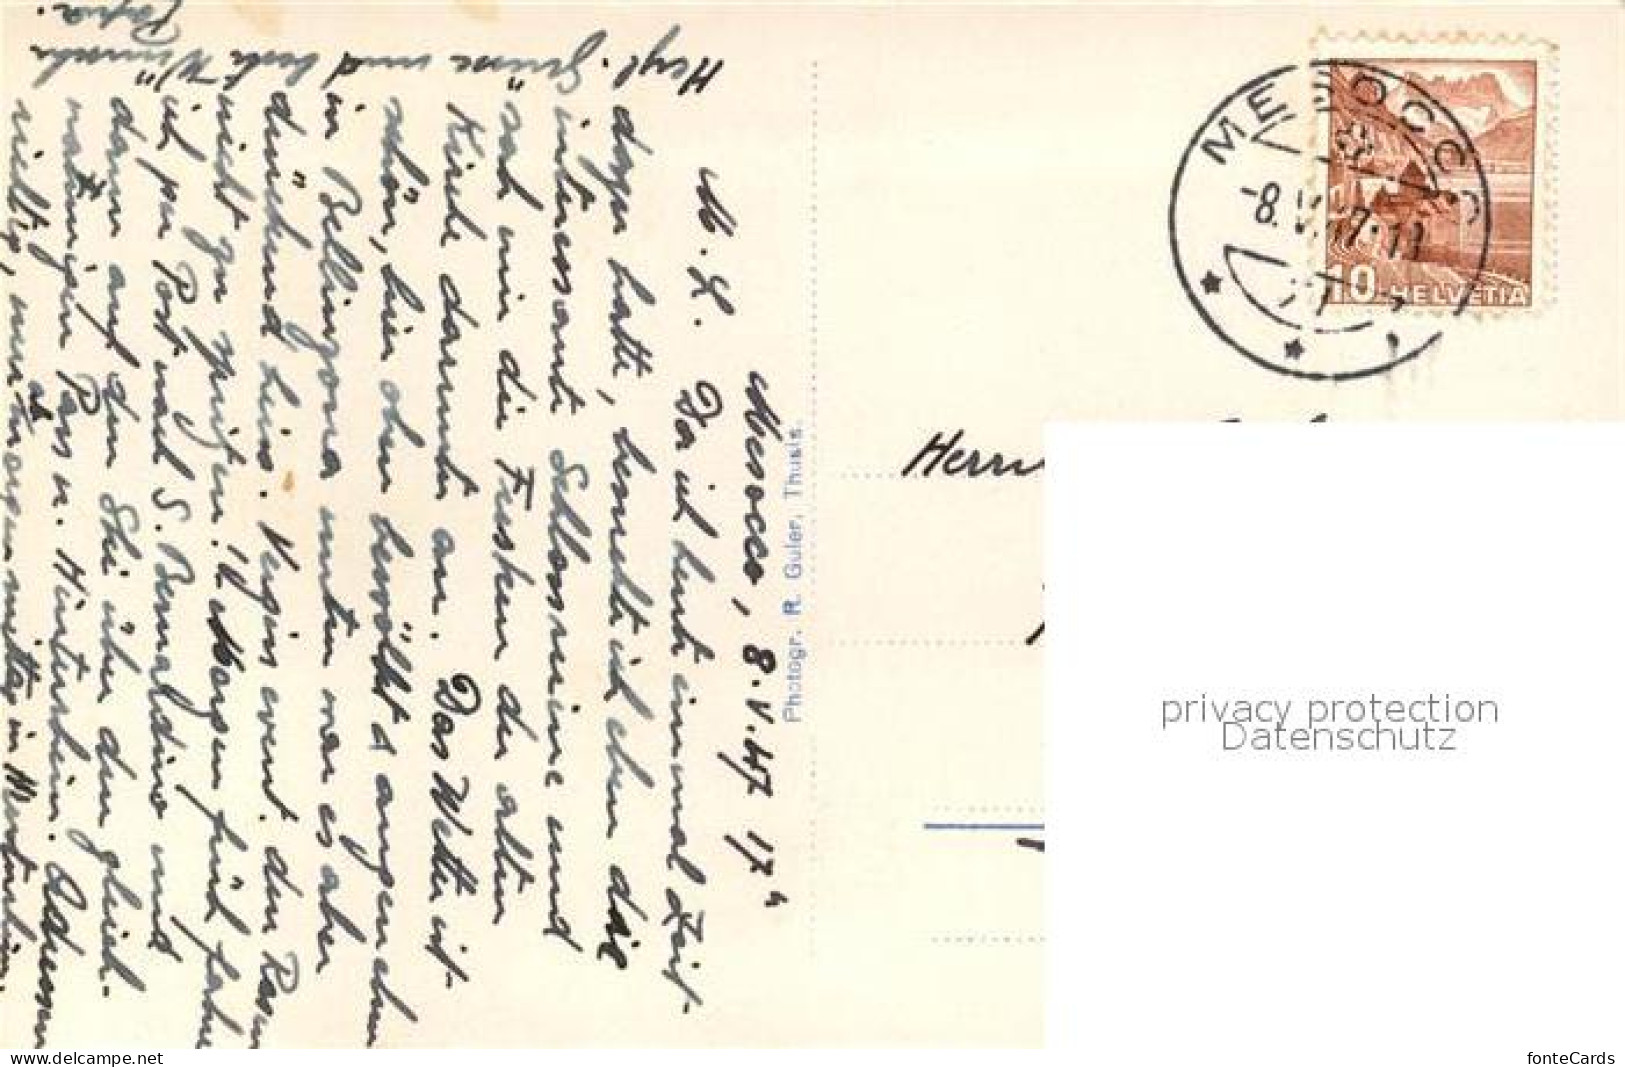 Mesocco, 8.V.47 17h
M. L. Da ich heute einmal Zeit
dazu hatte, besuchte ich eben die
interessante Schlossruine und
sah mir die Fresken der alten
Kirche darunter an. Das Wetter ist
schön, hier oben bewölkt & angenehm
in Bellinzona unten war es aber
drückend heiss. Vergiss event. den Rasen
nicht zu spritzen! Morgen früh fahre
ich per Post nach S. Bernardino und
dann auf den Ski über den gleich-
namigen Pass n. Hinterrhein. Adressen
richtig, nur morgen mittag in
Herzl. Grüsse und beste Wünsche
Papa.
Photogr. R. Guler, Thusis.
MESOCCO
-8.V.47-11
10 HELVETIA
Herrn
privacy protection
Datenschutz
fonteCards